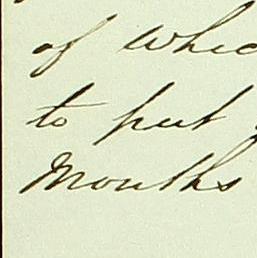 of whic
to put
Months